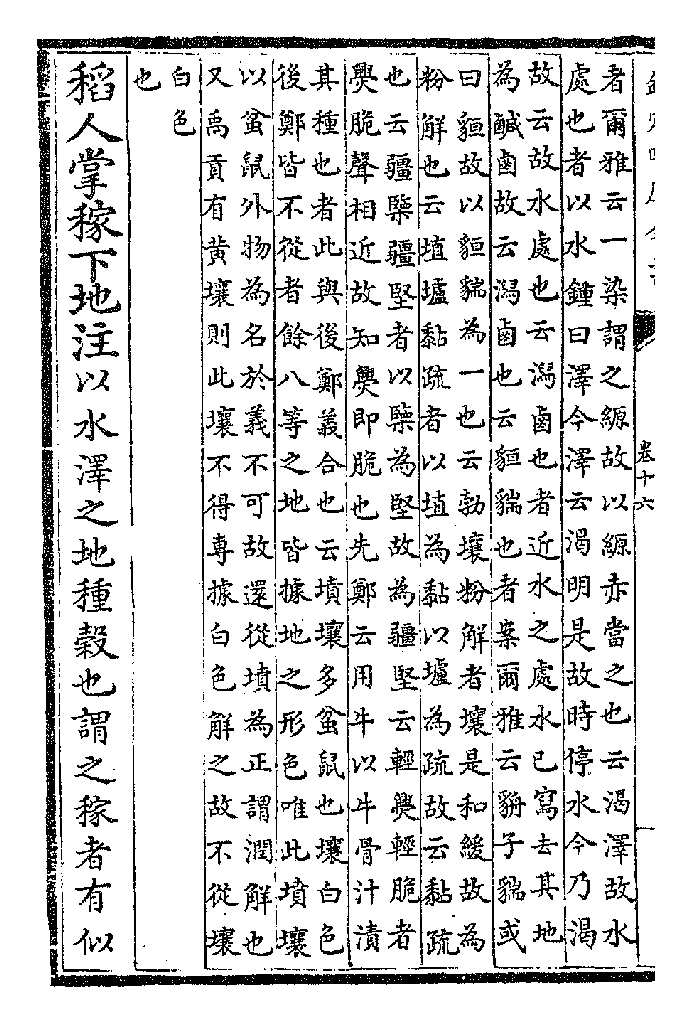 卷十六
者爾雅云一染謂之縓故以縓赤當之也云渴澤故水
處也者以水鍾曰澤今澤云渴明是故時停水今乃渴
故云故水處也云潟鹵也者近水之處水已寫去其地
為鹹鹵故云潟鹵也云貆貒也者案爾雅云貈子貒或
曰貆故以貆貒為一也云勃壤粉解者壤是和緩故為
粉解也云埴壚黏疏者以埴為黏以壚為疏故云黏疏
也云疆㯺疆堅者以㯺為堅故為疆堅云輕㷅輕脆者
㷅脆聲相近故知㷅即脆也先鄭云用牛以牛骨汁漬
其種也者此與後鄭義合也云墳壤多盆鼠也壤白色
後鄭皆不從者餘八等之地皆據地之形色唯此墳壤
以盆鼠外物為名於義不可故還從墳為正謂潤解也
又禹貢有黃壤則此壤不得專據白色解之故不從壤
白色
也
稻人掌稼下地注以水澤之地種穀也謂之稼者有似